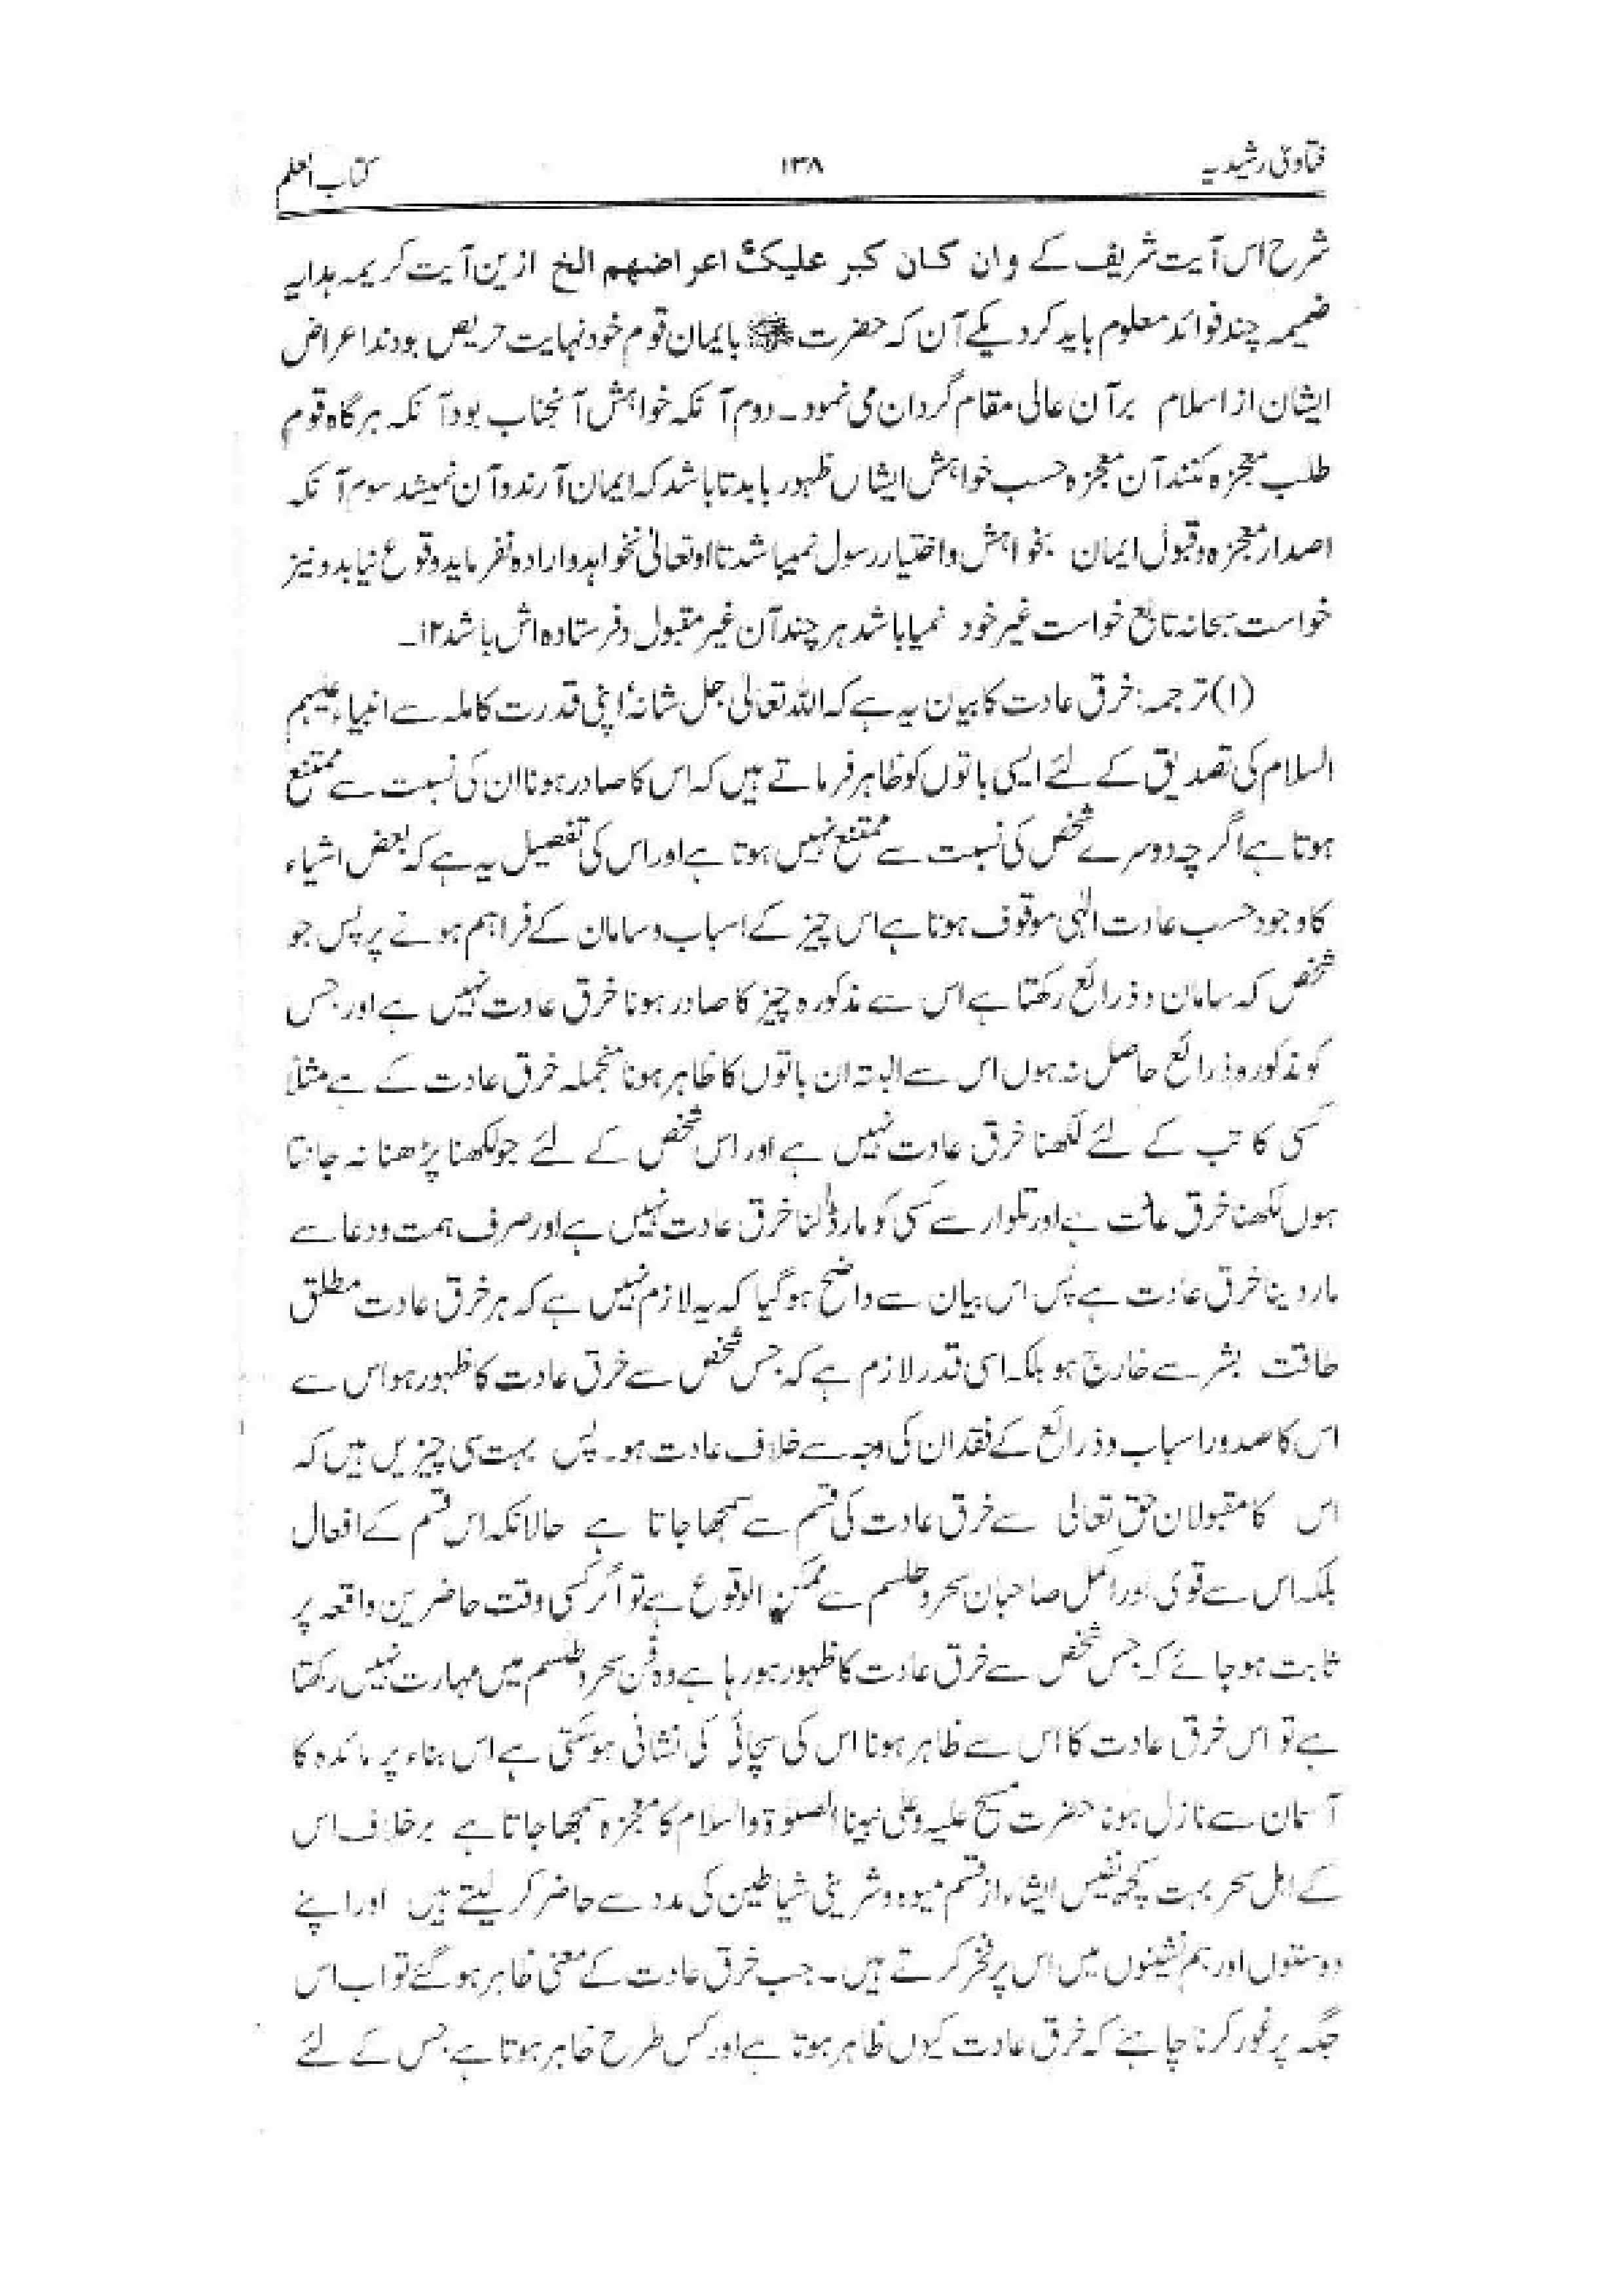 فتاوی رشیدیہ ۱۳۸ کتاب العلم
شرح اس آیت شریف کے وان کان کبر علیک اعراضهم الخ ازین آیت کریمہ ہدایہ
ضمیمہ چند فوائد معلوم باید کرد یکے آن کہ حضرت ﷺ بایمان قوم خود نہایت حریص بودند اعراض
ایشان از اسلام برآن عالی مقام گردان می نمود۔ دوم آنکہ خواہش آنجناب بود آنکہ ہرگاہ قوم
طلب معجزہ کنند آن معجزہ حسب خواہش ایشاں ظہور یابد تا باشد کہ ایمان آرند و آن نمیشد سوم آنکہ
اصدار معجزہ و قبول ایمان بخواہش و اختیار رسول نمیباشد تا او تعالیٰ نخواہد و ارادہ نفرماید وقوع نیابد و نیز
خواست سبحانہ تابع خواست غیر خود نمیا باشد ہر چند آن غیر مقبول و فرستادہ اش باشد ۱۲۔
(۱) ترجمہ: خرق عادت کا بیان یہ ہے کہ اللہ تعالیٰ جل شانہٗ اپنی قدرت کاملہ سے انبیاء علیہم
السلام کی تصدیق کے لئے ایسی باتوں کو ظاہر فرماتے ہیں کہ اس کا صادر ہونا ان کی نسبت سے ممتنع
ہوتا ہے اگر چہ دوسرے شخص کی نسبت سے ممتنع نہیں ہوتا ہے اور اس کی تفصیل یہ ہے کہ بعض اشیاء
کا وجود حسب عادت الٰہی موقوف ہوتا ہے اس چیز کے اسباب و سامان کے فراہم ہونے پر پس جو
شخص کہ سامان و ذرائع رکھتا ہے اس سے مذکورہ چیز کا صادر ہونا خرق عادت نہیں ہے اور جس
کو مذکورہ ذرائع حاصل نہ ہوں اس سے البتہ ان باتوں کا ظاہر ہونا منجملہ خرق عادت کے ہے مثلاً
کسی کاتب کے لئے لکھنا خرق عادت نہیں ہے اور اس شخص کے لئے جو لکھنا پڑھنا نہ جانتا
ہوں لکھنا خرق عادت ہے اور تلوار سے کسی کو مار ڈالنا خرق عادت نہیں ہے اور صرف ہمت و دعا سے
مار دینا خرق عادت ہے پس اس بیان سے واضح ہو گیا کہ یہ لازم نہیں ہے کہ ہر خرق عادت مطلق
طاقت بشر سے خارج ہو بلکہ اسی قدر لازم ہے کہ جس شخص سے خرق عادت کا ظہور ہو اس سے
اس کا صدور اسباب و ذرائع کے فقدان کی وجہ سے خلاف عادت ہو۔ پس بہت سی چیزیں ہیں کہ
اس کا مقبولان حق تعالیٰ سے خرق عادت کی قسم سے سمجھا جاتا ہے حالانکہ اس قسم کے افعال
بلکہ اس سے قوی اور اکمل صاحبان سحر و طلسم سے ممکن الوقوع ہے تو اگر کسی وقت حاضرین واقعہ پر
ثابت ہو جائے کہ جس شخص سے خرق عادت کا ظہور ہو رہا ہے وہ فن سحر و طلسم میں مہارت نہیں رکھتا
ہے تو اس خرق عادت کا اس سے ظاہر ہونا اس کی سچائی کی نشانی ہو سکتی ہے اس بناء پر مائدہ کا
آسمان سے نازل ہونا حضرت مسیح علیہ وعلی نبینا الصلوٰۃ والسلام کا معجزہ سمجھا جاتا ہے برخلاف اس
کے اہل سحر بہت کچھ نفیس ایشاء از قسم میوہ و شرینی شیاطین کی مدد سے حاضر کر لیتے ہیں اور اپنے
دوستوں اور ہم نشینوں میں اس پر فخر کرتے ہیں۔ جب خرق عادت کے معنی ظاہر ہو گئے تو اب اس
جگہ پر غور کرنا چاہئے کہ خرق عادت کیوں ظاہر ہوتا ہے اور کس طرح ظاہر ہوتا ہے جس کے لئے